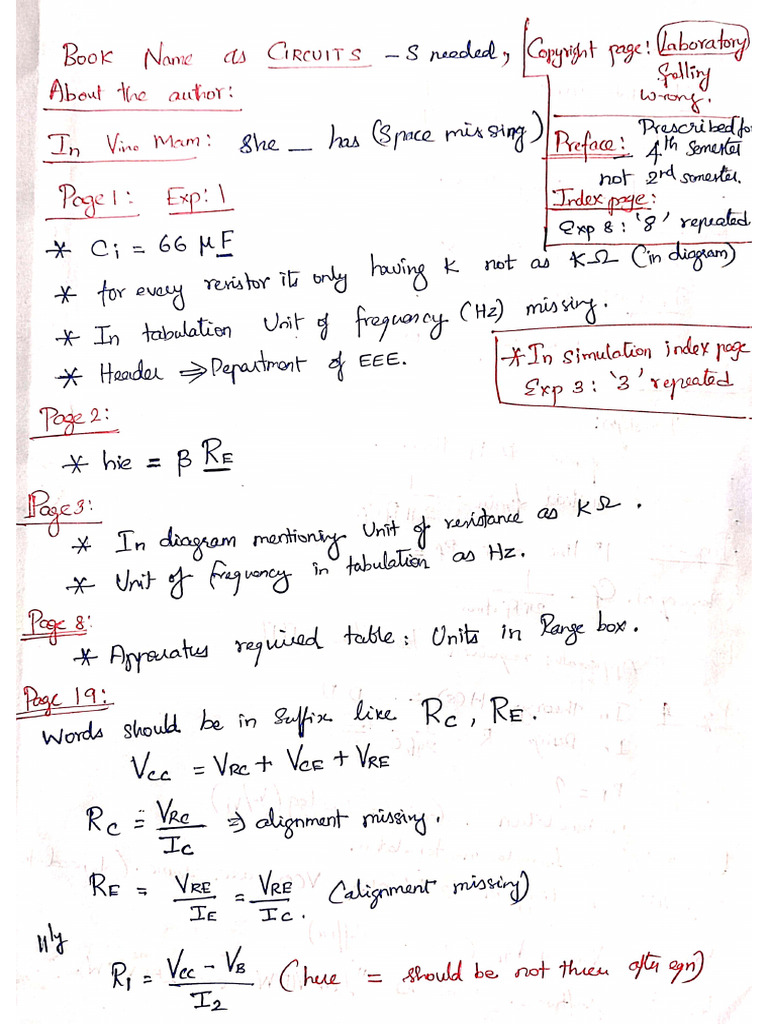 BOOK Name as CIRCUITS - S needed,
About the author:
In Vino Mam: She _ has (Space missing)
Copyright page: Laboratory
Spelling
wrong.
Preface: Prescribed for
4th Semester
not 2nd semester.
Index page:
Exp 8: '8' repeated
Page 1: Exp: 1
* Ci = 66 μF
* for every resistor its only having K not as KΩ (in diagram)
* In tabulation Unit of frequency (Hz) missing.
* Header ⇒ Department of EEE.
* In simulation index page
Exp 3: '3' repeated
Page 2:
* hie = β RE
Page 3:
* In diagram mentioning Unit of resistance as KΩ.
* Unit of frequency in tabulation as Hz.
Page 8:
* Apparatus required table: Units in Range box.
Page 19:
Words should be in Suffix like RC, RE.
Vcc = VRC + VCE + VRE
RC = VRC / IC ⇒ alignment missing.
RE = VRE / IE = VRE / IC. (alignment missing)
|||ly
R1 = Vcc - VB / I2 (here = should be not there after eqn)